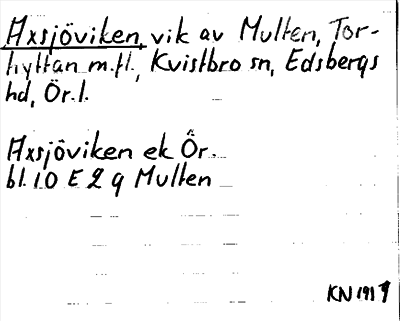 Axsjöviken, vik av Multen, Tor-
hyttan m.fl., Kvistbro sn, Edsbergs
hd, Ör.l.
Axsjöviken ek Ör.
bl. 10 E 2 g Multen
KN